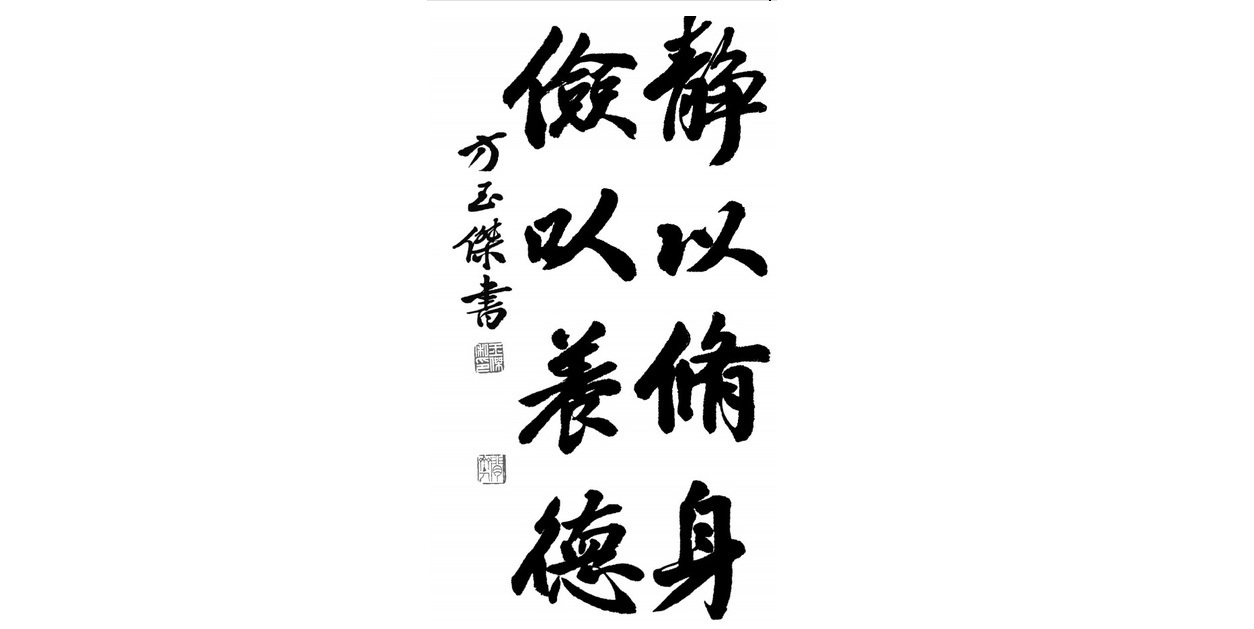 静以脩身
儉以養德
方玉傑書